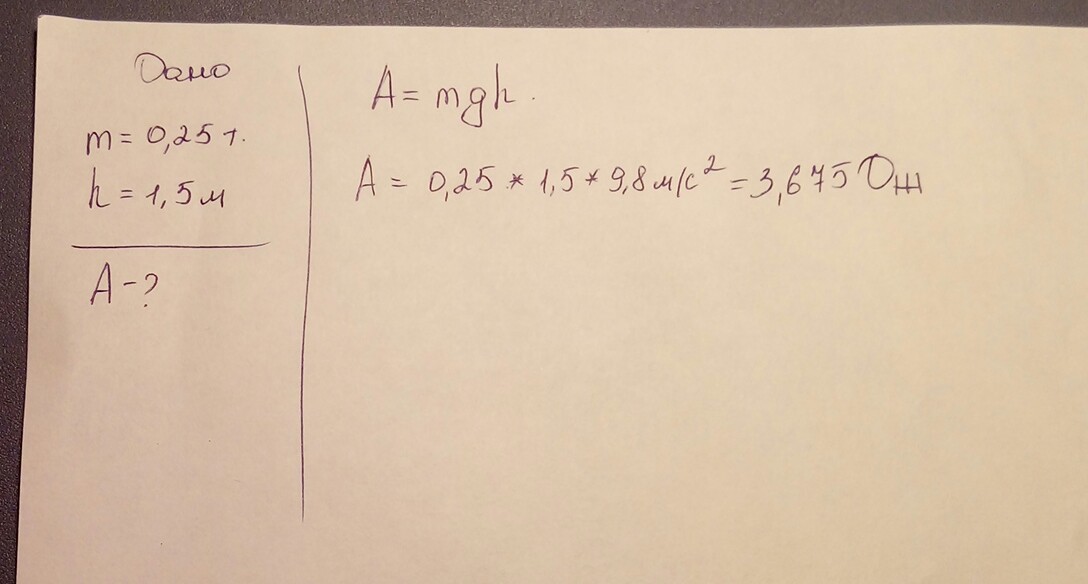 Дано
m = 0,25 т.
h = 1,5 м
A - ?
A = mgh.
A = 0,25 * 1,5 * 9,8 м/с² = 3,675 Дж